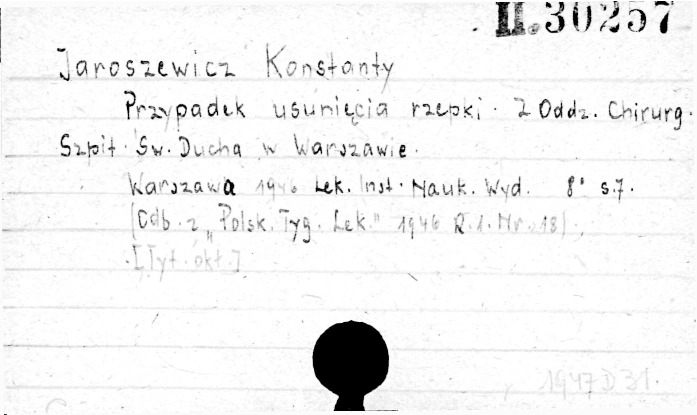 II.30257
Jaroszewicz Konstanty
Przypadek usunięcia rzepki. Z Oddz. Chirurg.
Szpit. Św. Ducha w Warszawie.
Warszawa 1946 Lek. Inst. Nauk. Wyd. 8° s.7.
(Odb. z „Polsk. Tyg. Lek." 1946 R.1. Nr. 18).
[Tyt. okł.]
1947 D 31.